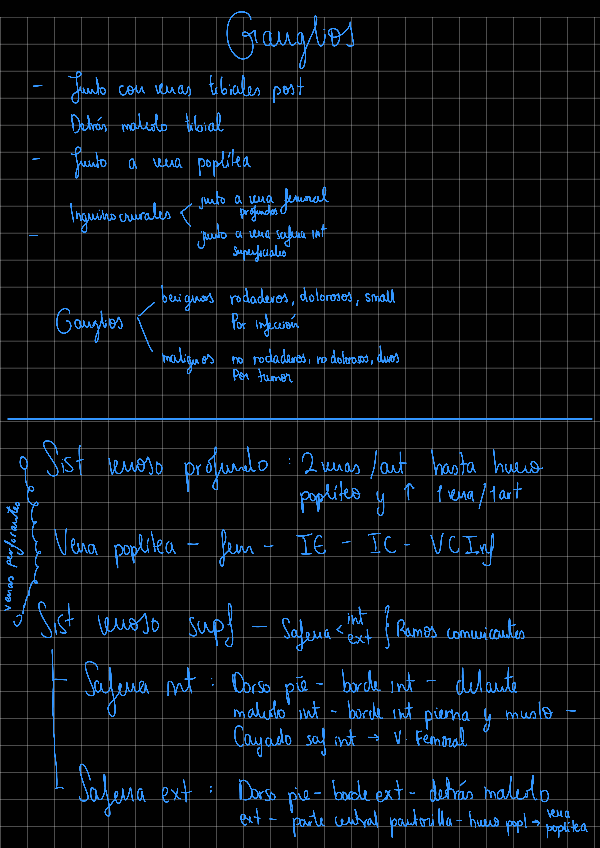 Ganglios
- Junto con venas tibiales post
Detrás maleolo tibial
- Junto a vena poplítea
- Inguinocrurales < junto a vena femoral
profundos
junto a vena safena int
superficiales
Ganglios
benignos rodaderos, dolorosos, small
Por infección
malignos no rodaderos, no dolorosos, duros
Por tumor
Sist venoso profundo : 2 venas / art hasta hueco
popliteo y ↑ 1 vena / 1 art
Vena poplítea - fem - IE - IC - VCInf
venas perforantes
Sist venoso supf - Safena < int
ext } Ramos comunicantes
Safena int : Dorso pie - borde int - delante
maleolo int - borde int pierna y muslo -
Cayado saf int → V. Femoral
Safena ext : Dorso pie - borde ext - detrás maleolo
ext - parte central pantorrilla - hueco popl → vena
poplítea